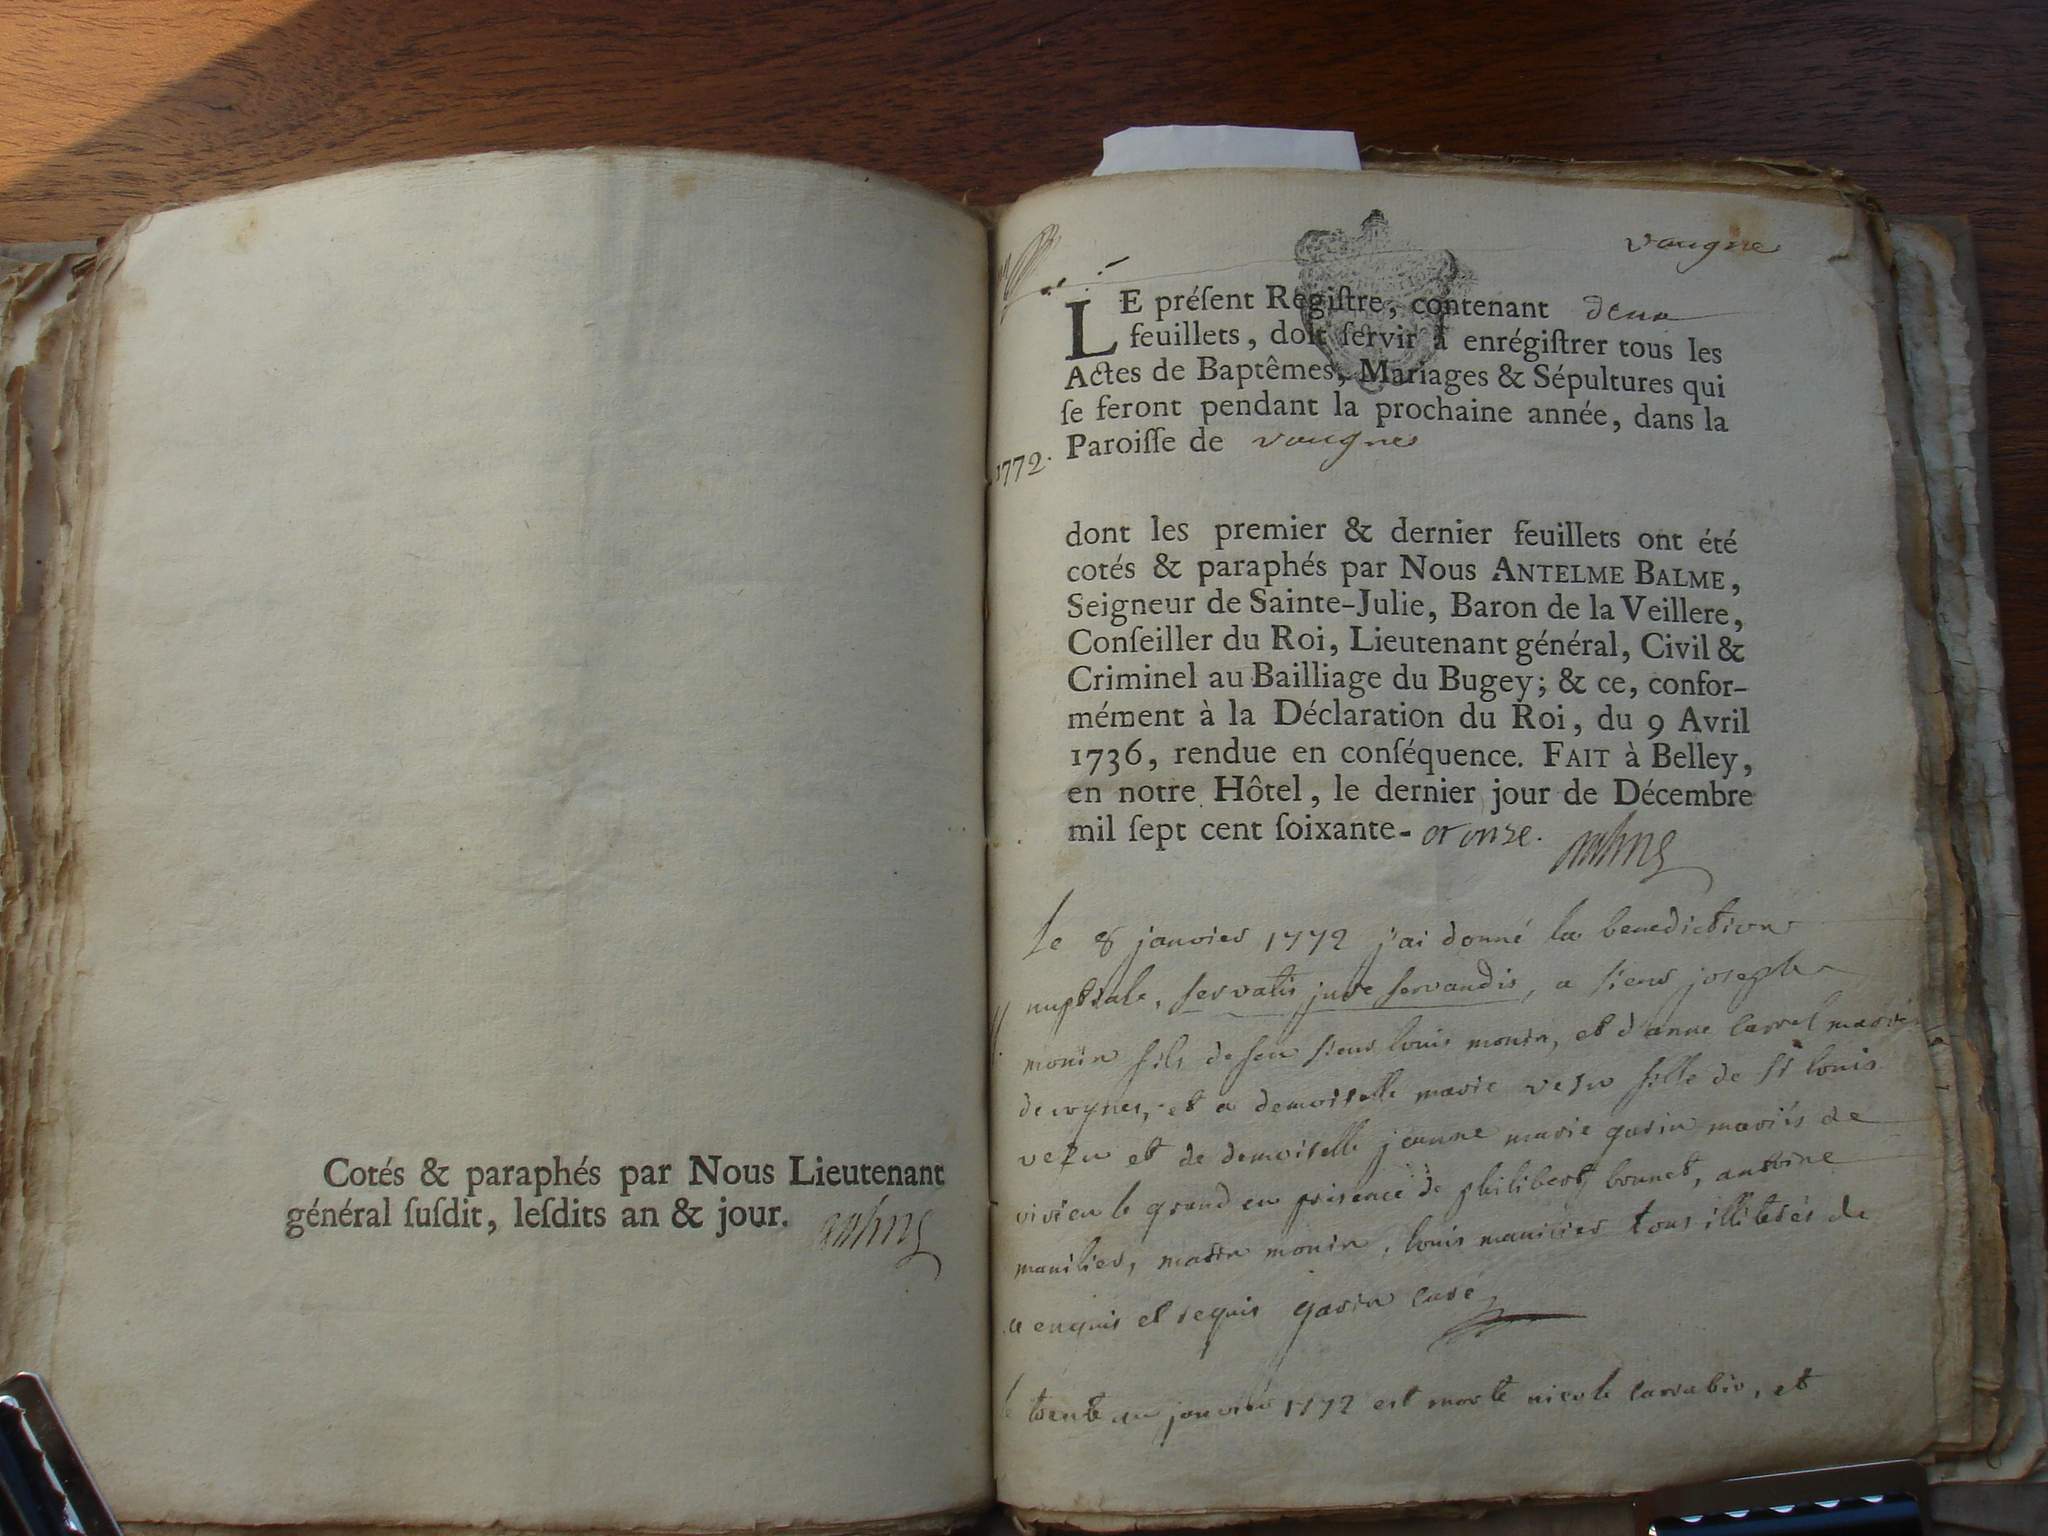 Cotés & paraphés par Nous Lieutenant
général ſuſdit, leſdits an & jour.
vougne
LE préſent Regiſtre, contenant deux
feuillets, doit ſervir à enrégiſtrer tous les
Actes de Baptêmes, Mariages & Sépultures qui
ſe feront pendant la prochaine année, dans la
Paroiſſe de vougnes
1772.
dont les premier & dernier feuillets ont été
cotés & paraphés par Nous ANTELME BALME,
Seigneur de Sainte-Julie, Baron de la Veillere,
Conſeiller du Roi, Lieutenant général, Civil &
Criminel au Bailliage du Bugey; & ce, confor-
mément à la Déclaration du Roi, du 9 Avril
1736, rendue en conſéquence. FAIT à Belley,
en notre Hôtel, le dernier jour de Décembre
mil ſept cent ſoixante- et onze.
Le 8 janvier 1772 j'ai donné la benediction
nuptiale, servatis jure servandis, a sieur joseph
monin fils de feu sieur louis monin, et d'anne carrel mariés
de et a demoiselle marie vezu fille de sr louis
vezu et de demoiselle jeanne marie garin mariés de
virieu le grand en presence de philibert bonnet, antoine
manilier, monin, louis manilier tous illiterés de
ce enquis et requis garin curé
le trente un janvier 1772 est morte nicole carrabin, et